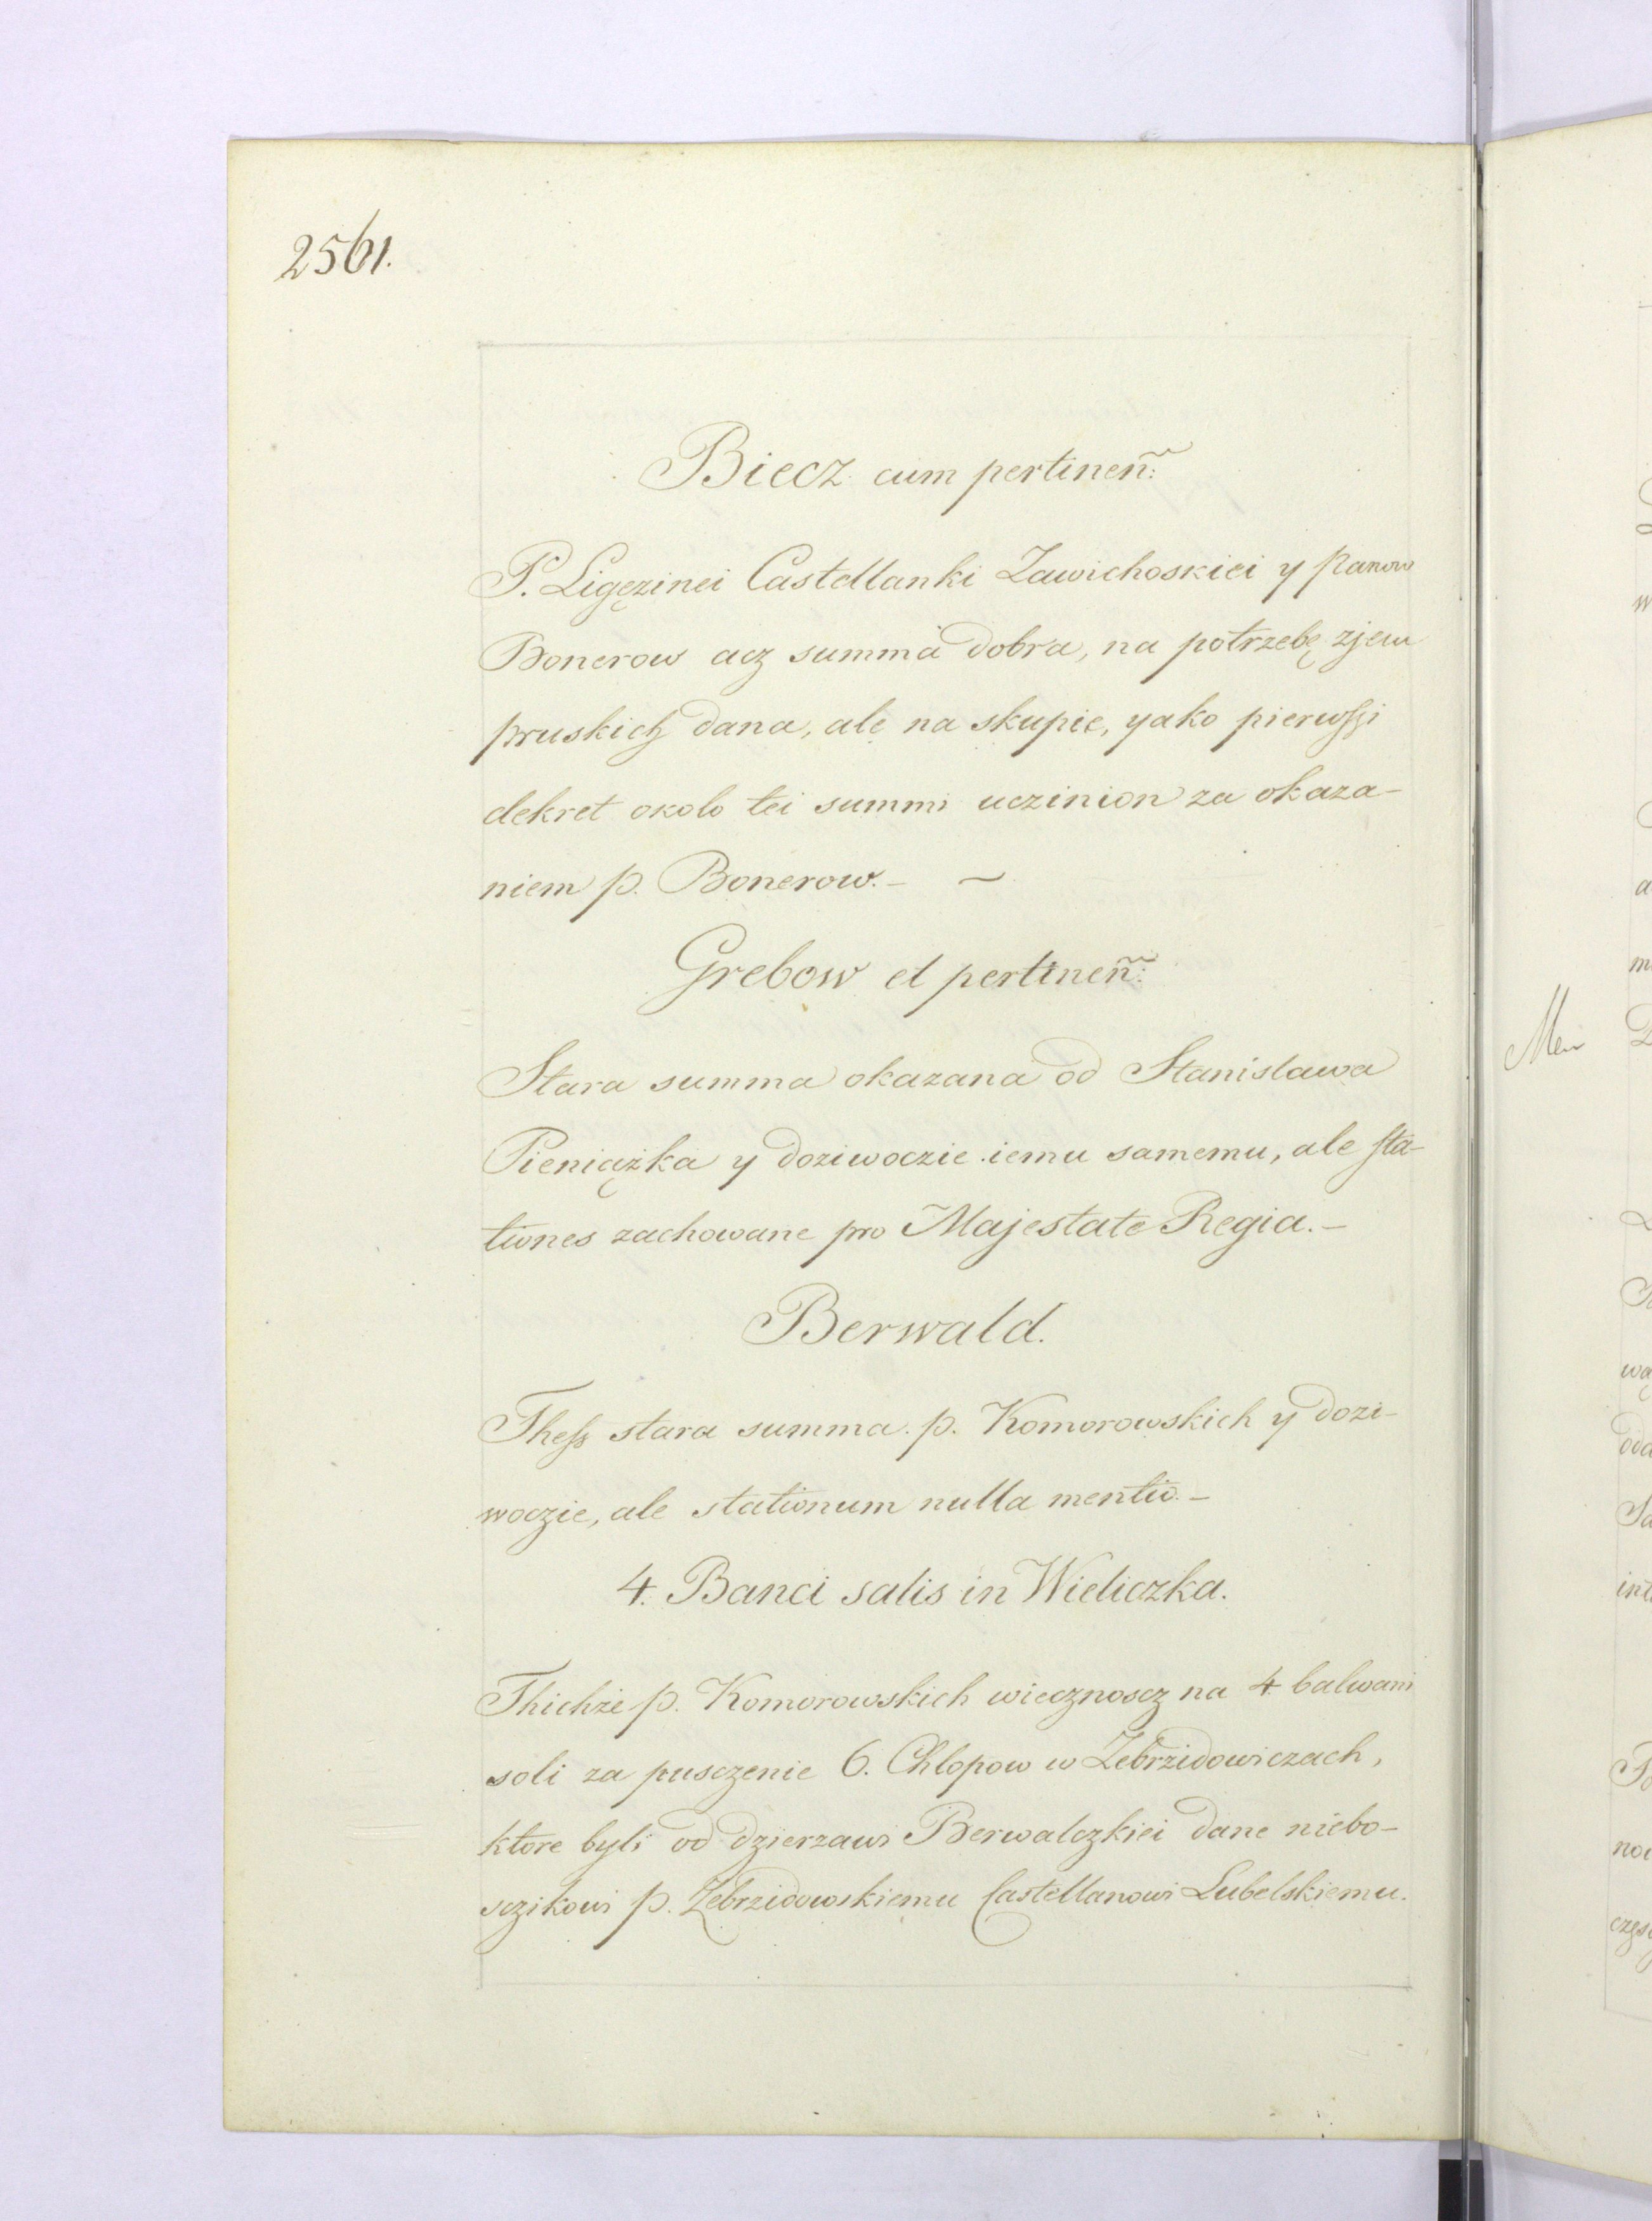 2561.
Biecz cum pertineñ:
P. Ligęzinei Castellanki Zawichoskiei y Panow
Bonerow acz summa dobra, na potrzebę zjem
pruskich dana, ale na skupie, yako pierwszi
dekret okolo tei summi uczinion za okaza-
niem p. Bonerow. –
Grebow et pertineñ:
Stara summa okazana od Stanislawa
Pieniążka y doziwoczie iemu samemu, ale sta-
tiones zachowane pro Majestate Regia. –
Berwald.
Thesz stara summa p. Komorowskich y dozi-
woczie, ale stationum nulla mentio. –
4. Banci salis in Wieliczka.
Thichże p. Komorowskich wiecznoscz na 4 balwani
soli za pusczenie 6. Chlopow w Zebrzidowiczach,
ktore byli od dzierzawi Berwalczkiei dane niebo-
sczikowi p. Zebrzidowskiemu Castellanowi Lubelskiemu.